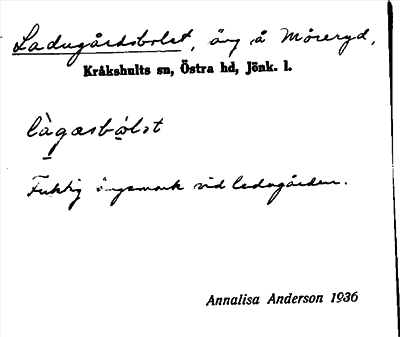 Ladugårdsbolet, äng å Möreryd,
Kråkshults sn, Östra hd, Jönk. l.
làgasbólst
Fuktig ängsmark vid ladugården.
Annalisa Anderson 1936